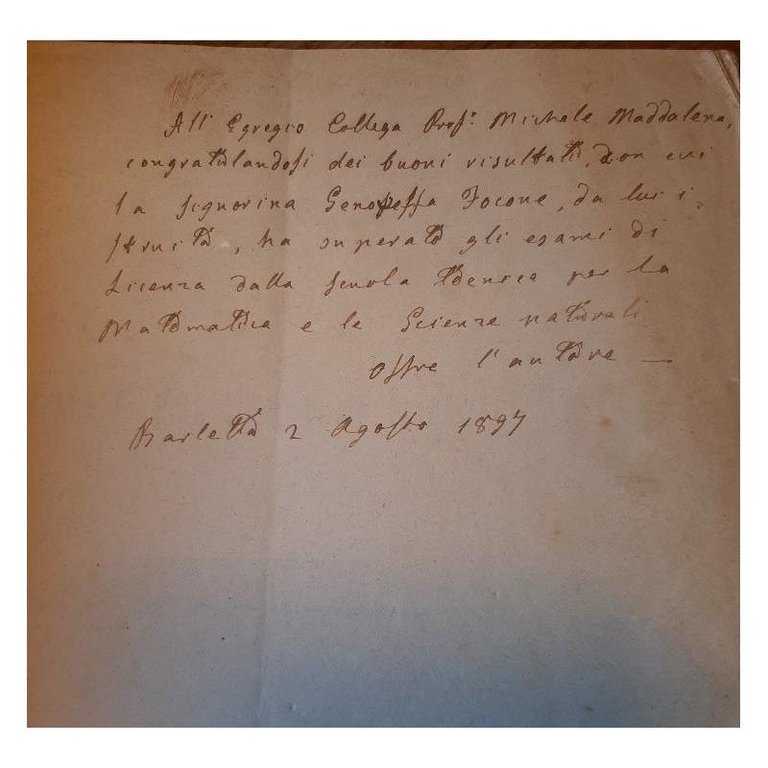 All' Egregio Collega Prof. Michele Maddalena,
congratulandosi dei buoni risultati, con cui
la signorina Genoveffa Focone, da lui i,
struita, ha superato gli esami di
Licenza dalla scuola tecnica per la
Matematica e le Scienze naturali
Offre l'autore —
Barletta 2 Agosto 1897